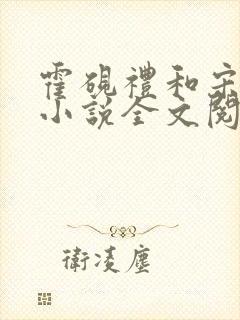 霍硯禮和宋
小說全文閱
衛凌塵